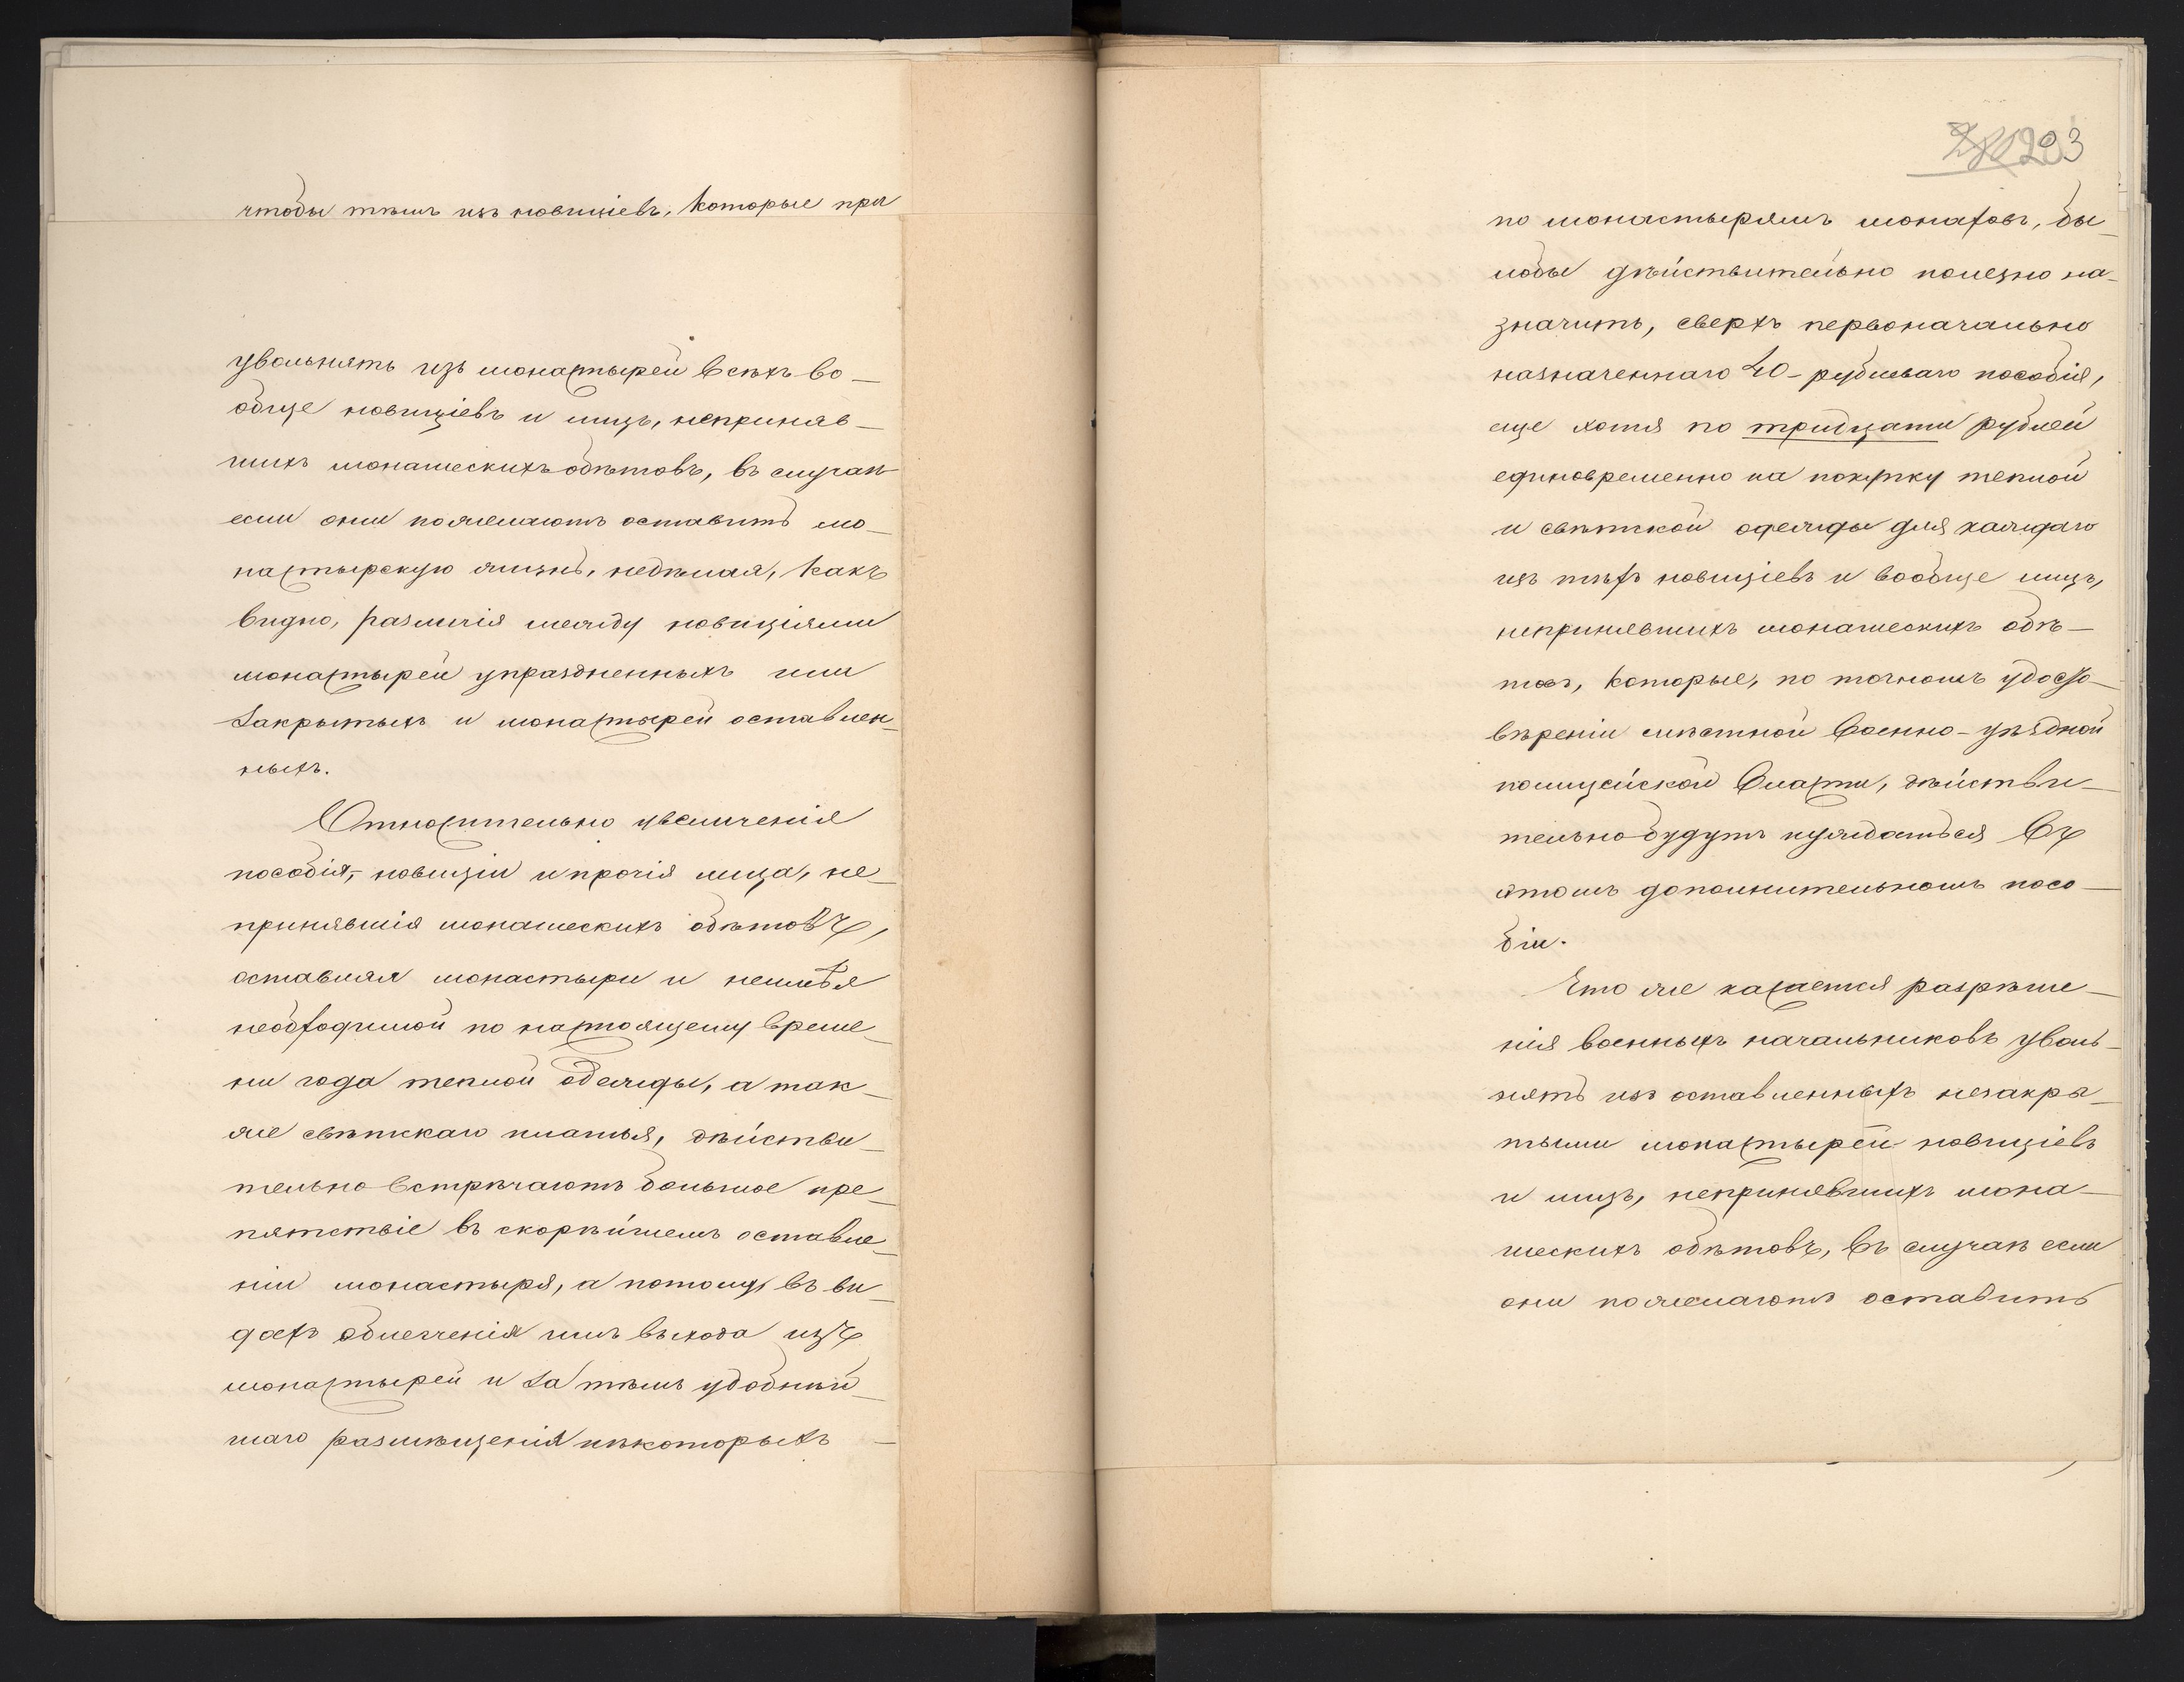 чтобы тѣмъ изъ новиціевъ, которые при
увольнять изъ монастырей всѣхъ во-
обще новиціевъ и лицъ, неприняв-
шихъ монашескихъ обѣтовъ, въ случаѣ
если они пожелаютъ оставить мо-
настырскую жизнь, недѣлая, какъ
видно, различія между новиціями
монастырей упраздненныхъ или
закрытыхъ и монастырей оставлен-
ныхъ.
Относительно увеличенія
пособія, новиціи и прочія лица, не-
принявшія монашескихъ обѣтовъ,
оставляя монастыри и неимѣя
необходимой по настоящему време-
ни года теплой одежды, а так-
же свѣтскаго платья, дѣйстви-
тельно встрѣчаютъ большое пре-
пятствіе въ скорѣйшемъ оставле-
ніи монастыря, а потому въ ви-
дахъ облегченія имъ выхода изъ
монастырей и затѣмъ удобнѣй-
шаго размѣщенія нѣкоторыхъ
203
по монастырямъ монаховъ, бы-
лобы дѣйствительно полезно на-
значить, сверхъ первоначально
назначеннаго 40-рублеваго пособія,
еще хотя по тридцати рублей
единовременно на покупку теплой
и свѣтской одежды для каждаго
изъ тѣхъ новиціевъ и вообще лицъ,
непринявшихъ монашескихъ обѣ-
товъ, которые, по точномъ удосто-
вѣреніи мѣстной военно-уѣздной
полицейской власти, дѣйстви-
тельно будутъ нуждаться въ
этомъ дополнительномъ посо-
біи.
Что же касается разрѣше-
нія военныхъ начальниковъ уволь-
нять изъ оставленныхъ незакры-
тыми монастырей новиціевъ
и лицъ, непринявшихъ мона-
шескихъ обѣтовъ, въ случаѣ если
они пожелаютъ оставить